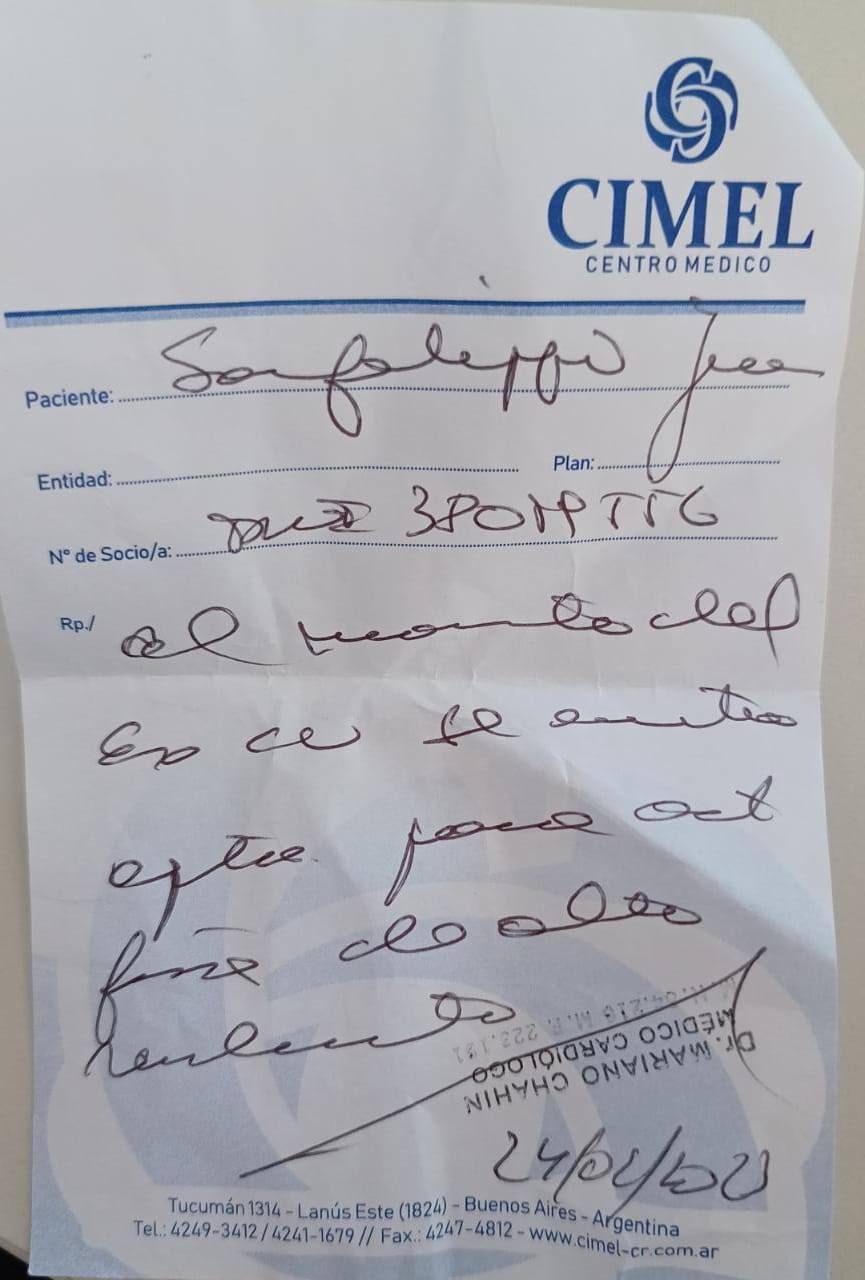 CIMEL
CENTRO MEDICO
Paciente: Sanfelippo Juan
Entidad:
Plan:
N° de Socio/a:
Rp./ al momento del
Ex CV se encuentra
apta para act
física de alto
rendimiento
Dr. MARIANO CHAHIN
MÉDICO CARDIÓLOGO
24/02/2023
Tucumán 1314 - Lanús Este (1824) - Buenos Aires - Argentina
Tel.: 4249-3412 / 4241-1679 // Fax.: 4247-4812 - www.cimel-cr.com.ar